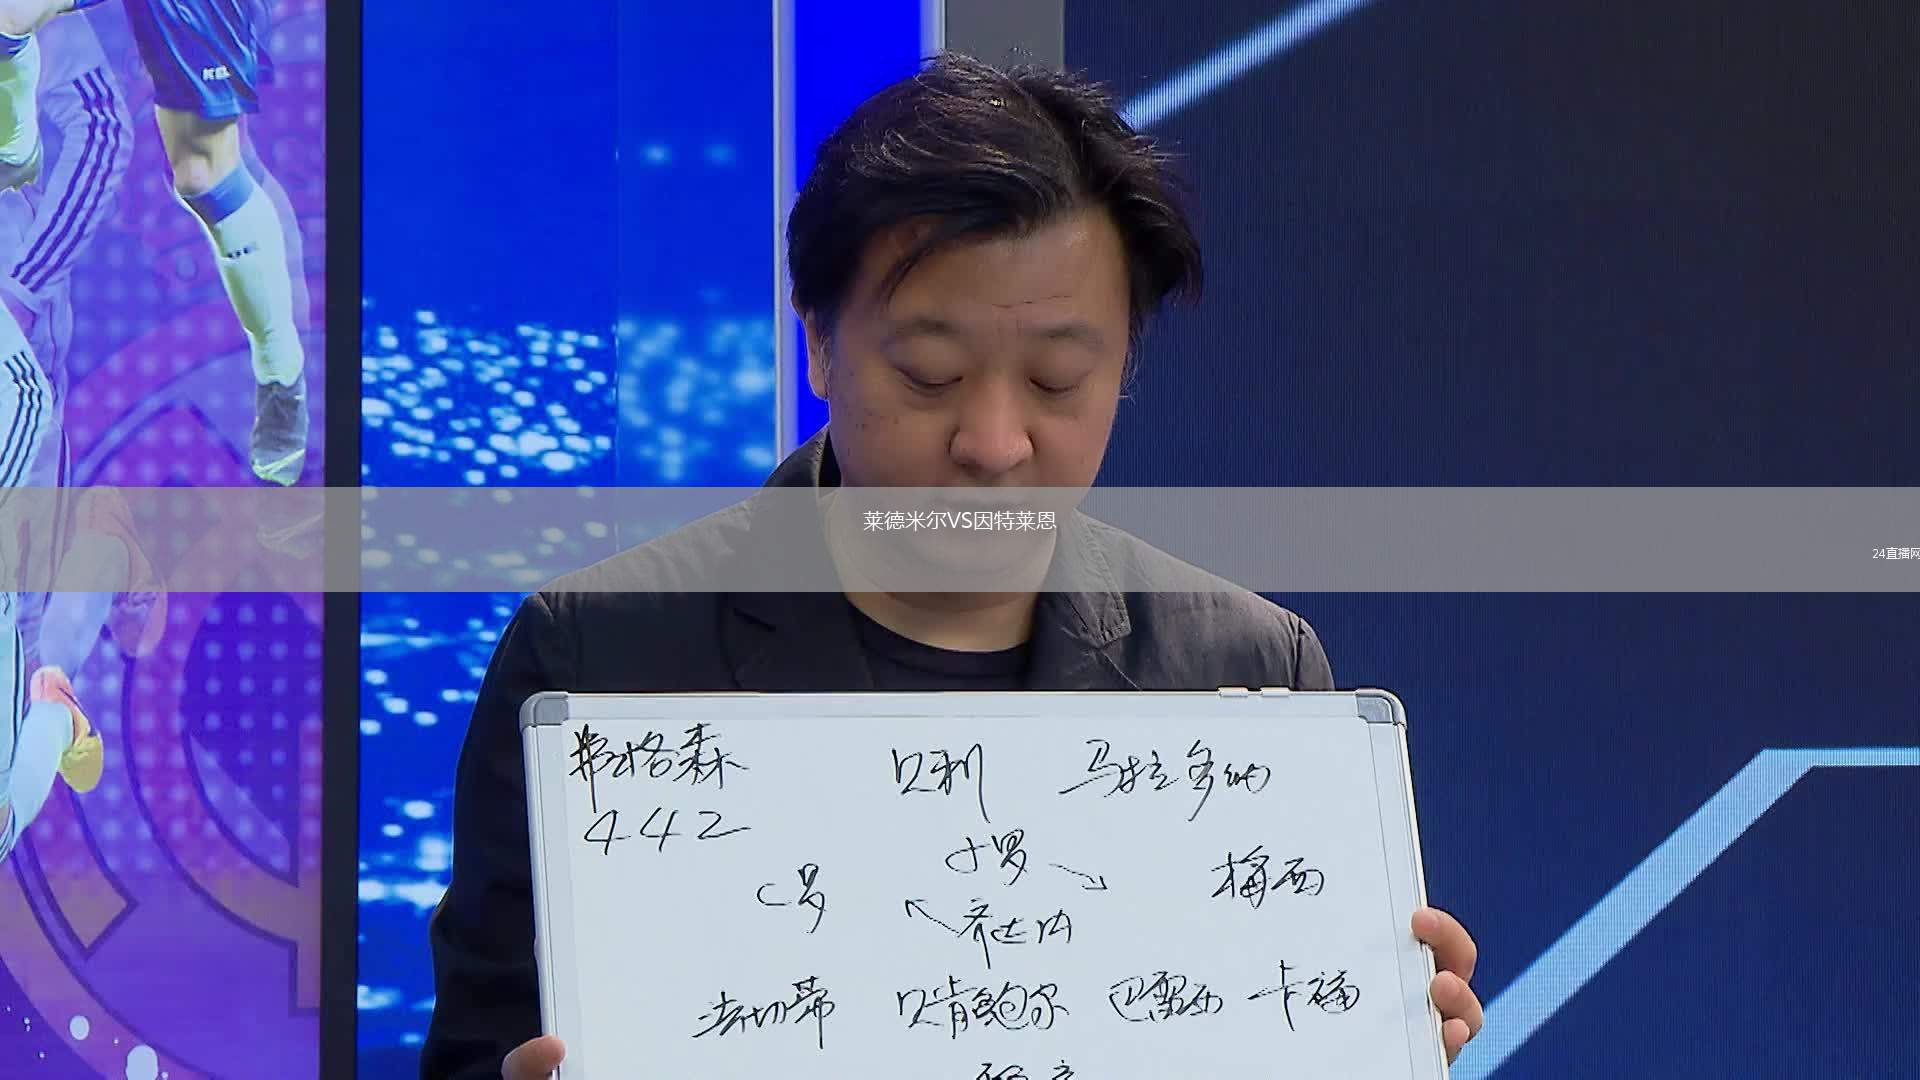 莱德米尔VS因特莱恩
24直播网
弗格森 贝利 马拉多纳
442
小罗
C罗 梅西
齐达内
法切蒂 贝肯鲍尔 巴雷西 卡福